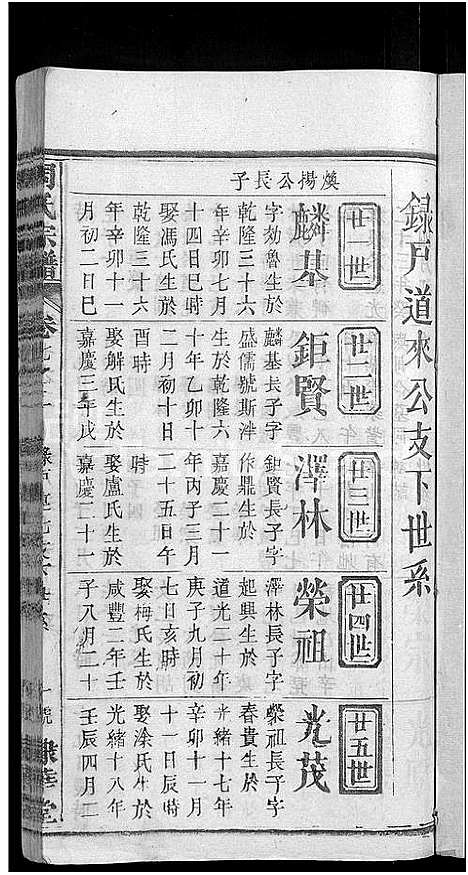 錄戶道來公支下世系
廿一世
煥揚公長子
麟基
字効魯生於
乾隆三十六
年辛卯七月
十四日巳時
娶馮氏生於
乾隆三十六
年辛卯十一
月初二日巳
廿二世
鉅賢
麟基長子字
盛儒號斯泮
生於乾隆六
十年乙卯十
二月初十日
酉時
娶解氏生於
嘉慶三年戊
廿三世
澤林
鉅賢長子字
作鼎生於
嘉慶二十一
年丙子三月
二十五日午
時
娶盧氏生於
嘉慶二十一
廿四世
榮祖
澤林長子字
起興生於
道光二十年
庚子九月初
七日亥時
娶梅氏生於
咸豐二年壬
子八月二十
廿五世
光茂
榮祖長子字
春貴生於
光緒十七年
辛卯十一月
十一日辰時
娶涂氏生於
光緒十八年
壬辰四月二
周氏宗譜
卷